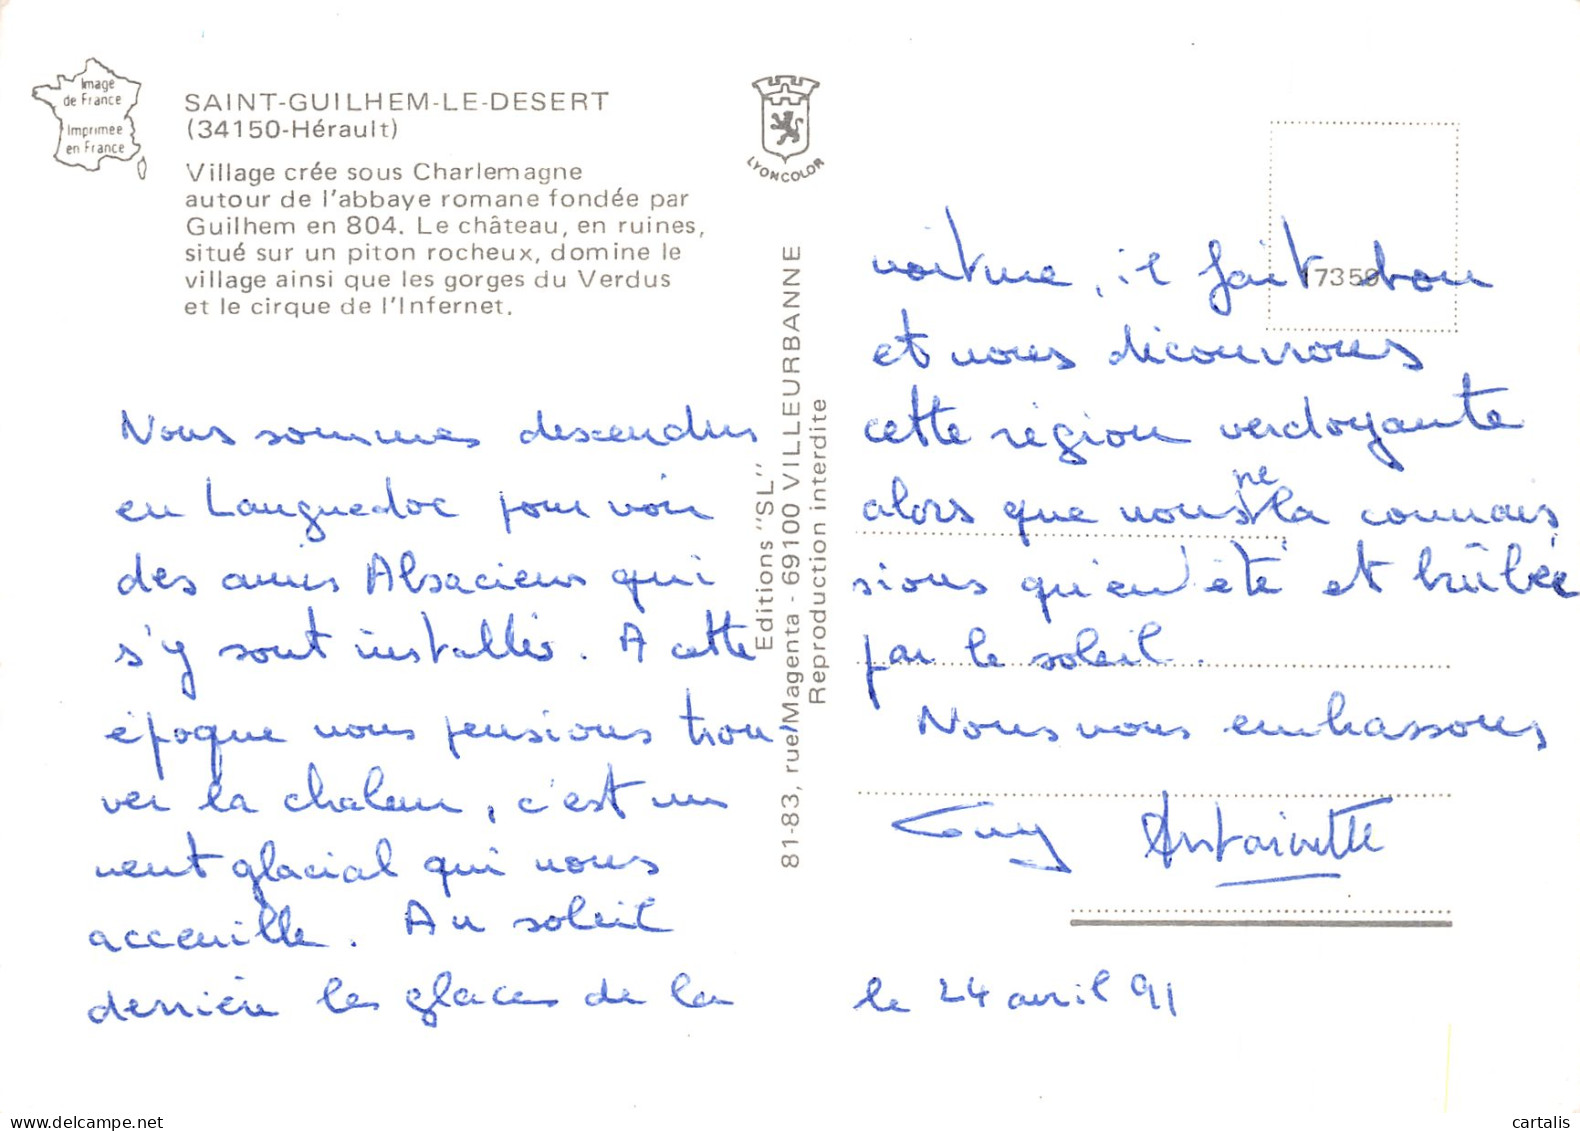 Image
de France
Imprimee
en France
SAINT-GUILHEM-LE-DESERT
(34150-Hérault)
Village crée sous Charlemagne
autour de l'abbaye romane fondée par
Guilhem en 804. Le château, en ruines,
situé sur un piton rocheux, domine le
village ainsi que les gorges du Verdus
et le cirque de l'Infernet.
LYONCOLOR
Editions "SL"
81-83, rue Magenta - 69100 VILLEURBANNE
Reproduction interdite
Nous sommes descendus
en Languedoc pour voir
des amis Alsaciens qui
s'y sont installés. A cette
époque nous pensions trou-
ver la chaleur, c'est un
vent glacial qui nous
acceuille. Au soleil
derrière les glaces de la
voiture, il fait bon
et nous découvrons
cette région verdoyante
alors que nous ne la connais
sions qu'en été et brûlée
par le soleil.
Nous vous embrassons
Guy Antoinette
le 24 avril 91
cartalis